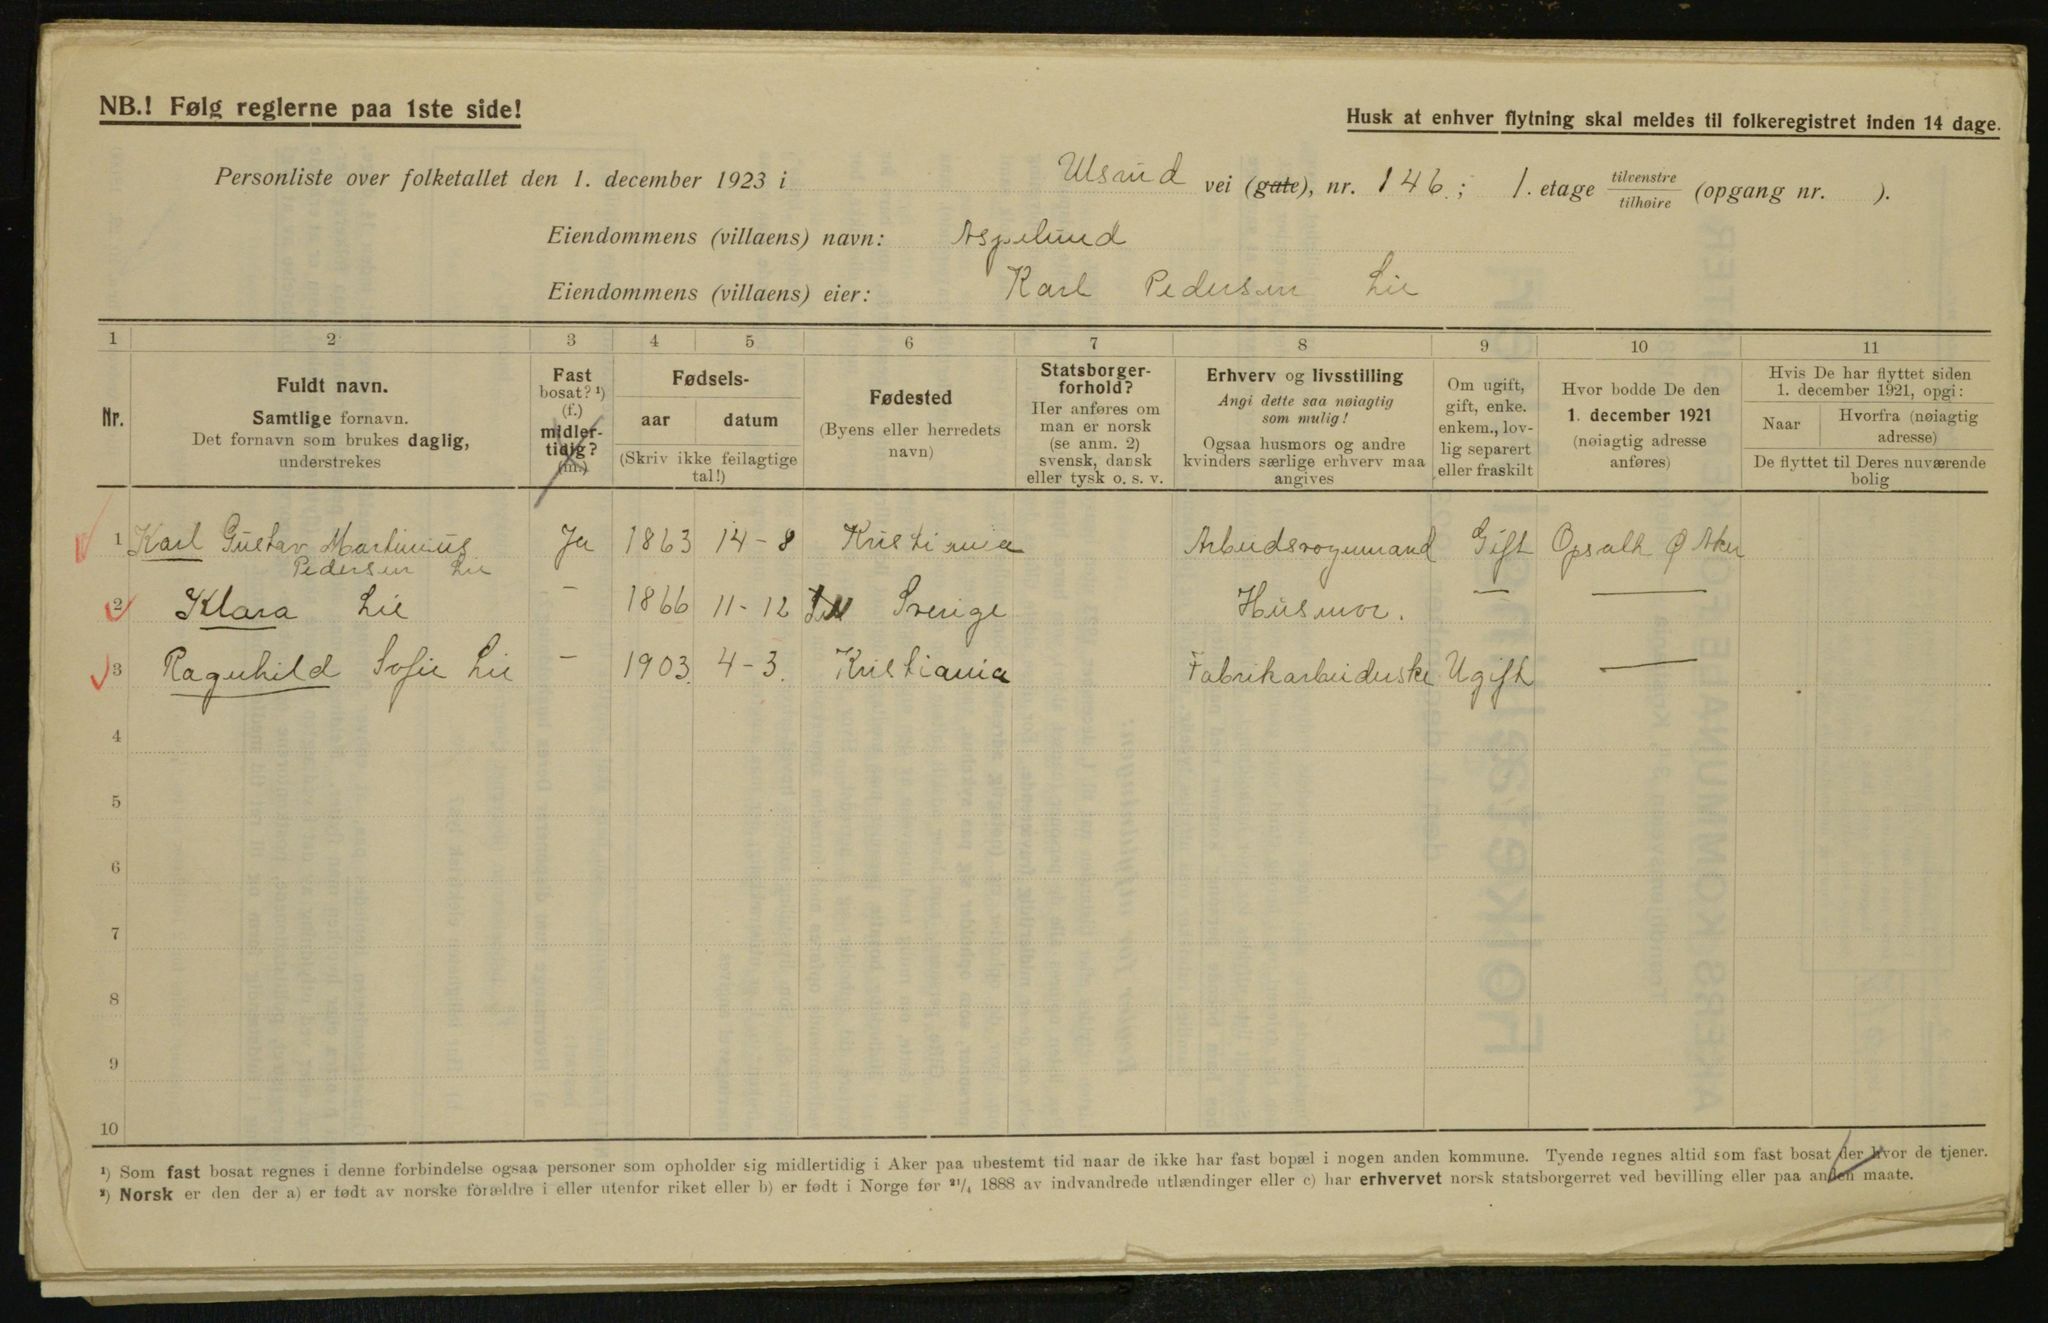 NB.! Følg reglerne paa 1ste side!
Husk at enhver flytning skal meldes til folkeregistret inden 14 dage.
Personliste over folketallet den 1. december 1923 i Ulsrud vei (gate), nr. 146; 1. etage tilvenstre tilhøire (opgang nr. ).
Eiendommens (villaens) navn: Aspelund
Eiendommens (villaens) eier: Karl Pedersen Lie
1 2 3 4 5 6 7 8 9 10 11
Nr.
Fuldt navn.
Samtlige fornavn.
Det fornavn som brukes daglig,
understrekes
Fast
bosat? ¹)
(f.)
midler-
tidig?
(m.)
Fødsels-
aar datum
(Skriv ikke feilagtige
tal!)
Fødested
(Byens eller herredets
navn)
Statsborger-
forhold?
Her anføres om
man er norsk
(se anm. 2)
svensk, dansk
eller tysk o. s. v.
Erhverv og livsstilling
Angi dette saa nøiagtig
som mulig!
Ogsaa husmors og andre
kvinders særlige erhverv maa
angives
Om ugift,
gift, enke.
enkem., lov-
lig separert
eller fraskilt
Hvor bodde De den
1. december 1921
(nøiagtig adresse
anføres)
Hvis De har flyttet siden
1. december 1921, opgi:
Naar Hvorfra (nøiagtig
adresse)
De flyttet til Deres nuværende
bolig
1 Karl Gustav Martinius Ja 1863 14-8 Kristiania Arbeidsvognmand Gift Opsalh Ø Aker
Pedersen Lie
2 Klara Lie - 1866 11-12 Sverige Husmor. — —
3 Ragnhild Sofie Lie - 1903. 4-3. Kristiania Fabrikarbeiderske Ugift —
4
5
6
7
8
9
10
¹) Som fast bosat regnes i denne forbindelse ogsaa personer som opholder sig midlertidig i Aker paa ubestemt tid naar de ikke har fast bopæl i nogen anden kommune. Tyende regnes altid som fast bosat der hvor de tjener.
²) Norsk er den der a) er født av norske forældre i eller utenfor riket eller b) er født i Norge før ²¹/₄ 1888 av indvandrede utlændinger eller c) har erhvervet norsk statsborgerret ved bevilling eller paa anden maate.